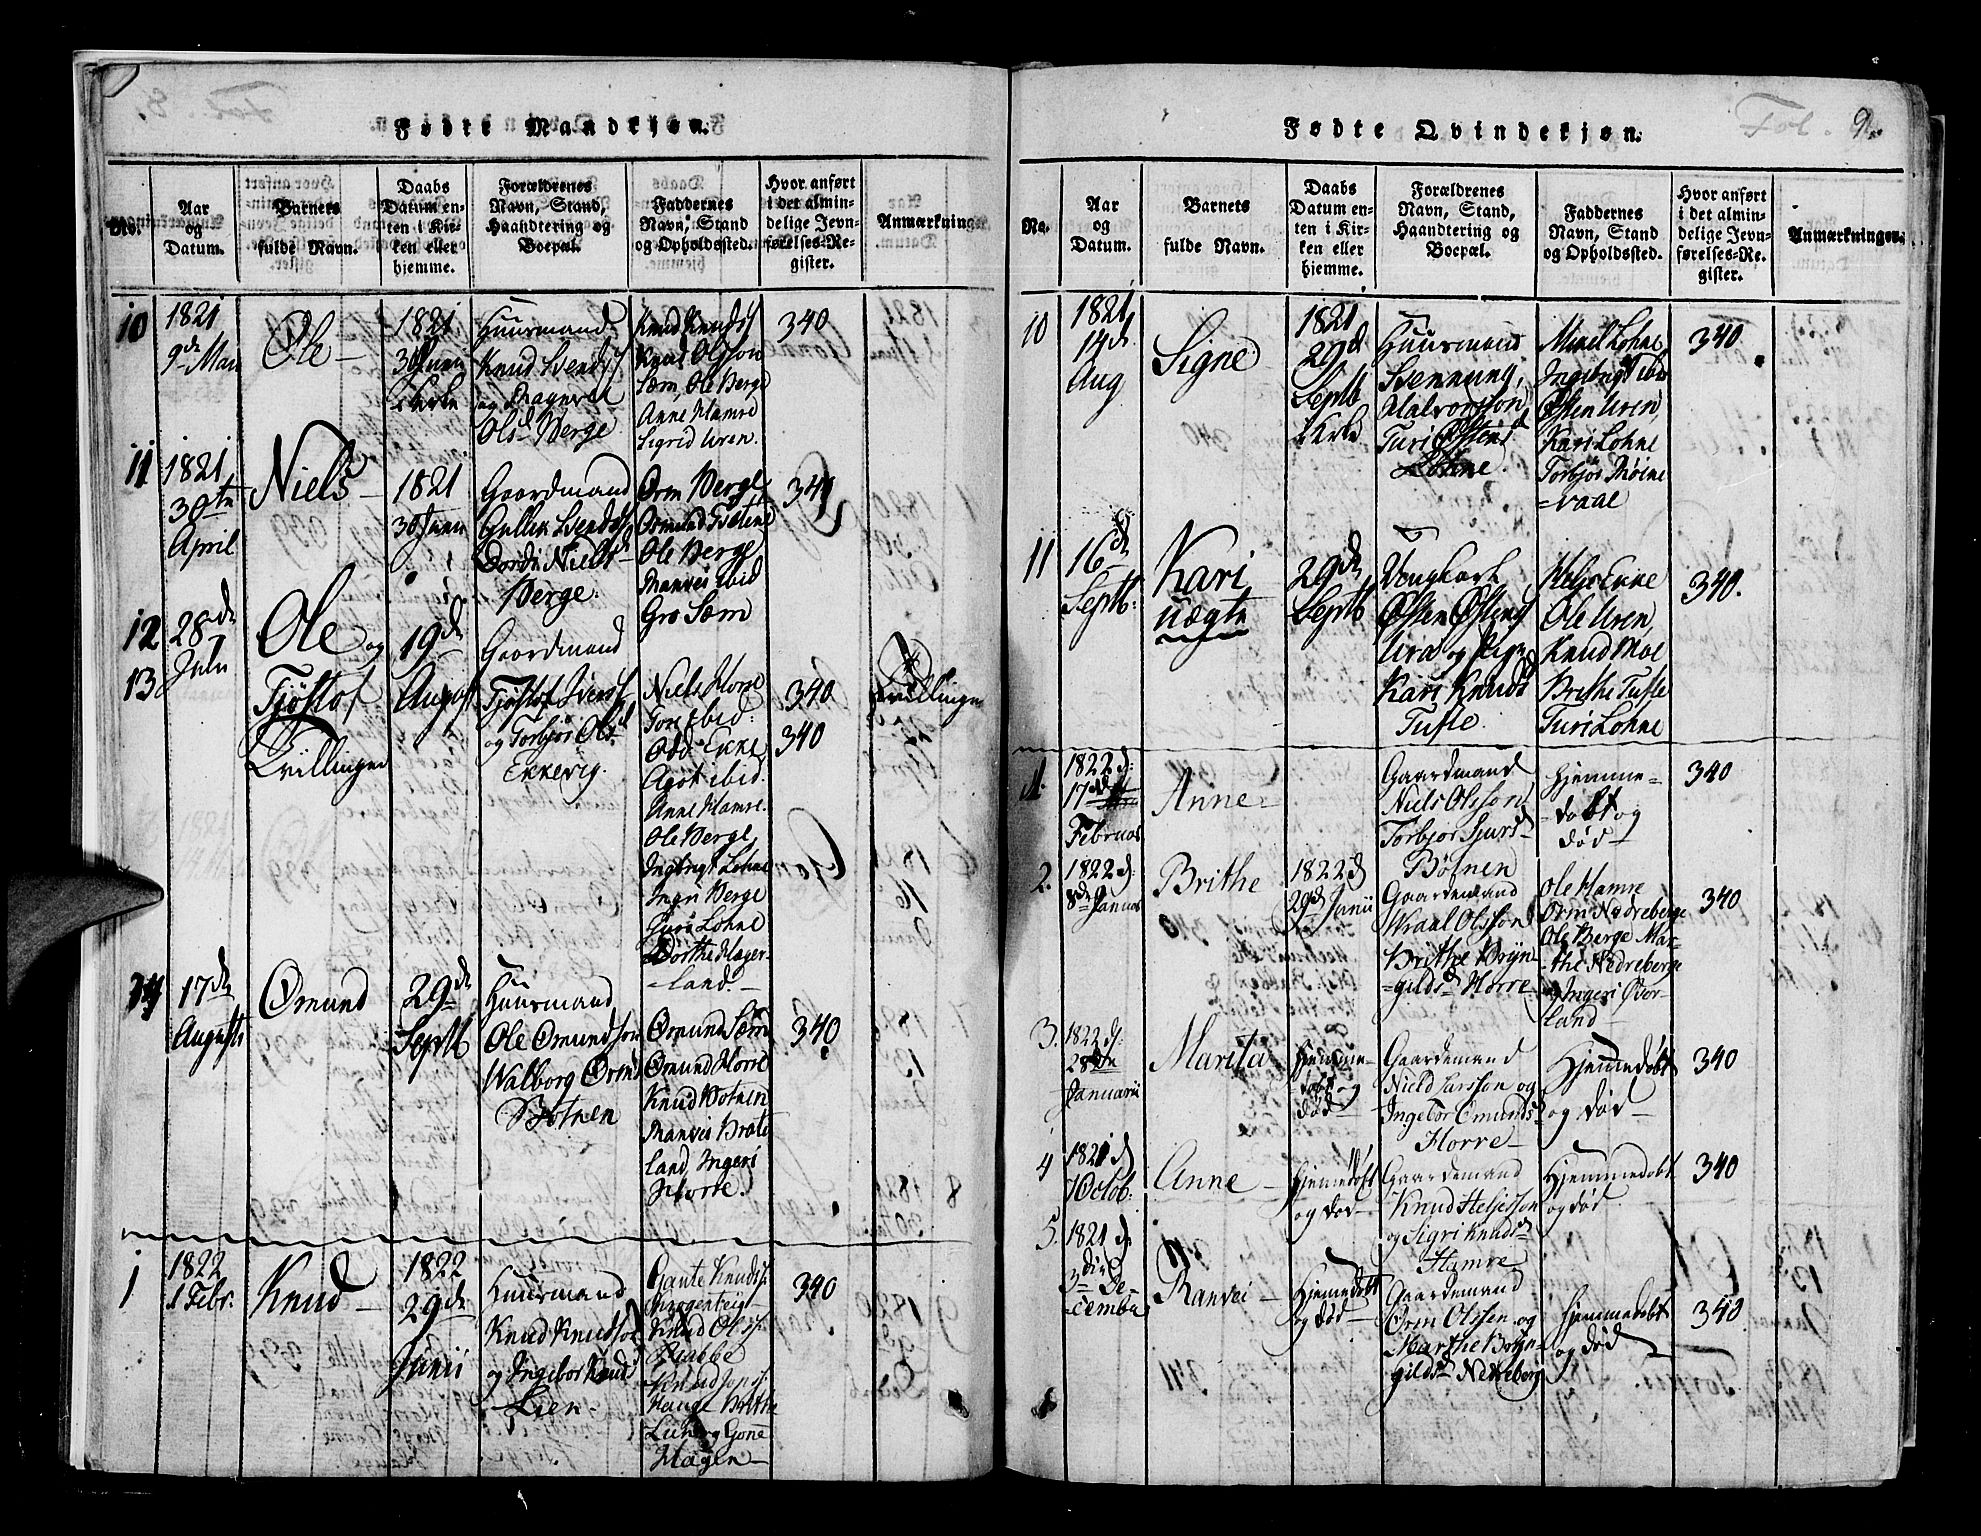 Fødte Mandkjøn.
No.
Aar
og
Datum.
Barnets
fulde Navn.
Daabs
Datum en-
ten i Kir-
ken eller
hjemme.
Forældrenes
Navn, Stand,
Haandtering og
Boepæl.
Faddernes
Navn, Stand
og Opholdssted.
Hvor anført
i det almin-
delige Jevn-
førelses-Re-
gister.
Anmærkninger
10
1821
9de Mai
Ole
1821
30 Juni
Huusmand
Knud Svends
og Ragnild
Olsd Berge
Knud Knuds
Knud Olsson
Sæm, Ole Berge
Anne Hamre
Sigrid Uren.
340
11
1821
30te
April
Niels
1821
30 Juni
Gaardmand
Gullik Svends
Niels
Berge.
Orm Berge
Ole Berge
Ranvei ibid
Gro Sæm
12
28de
Juli
Ole og
19de
Gaardmand
13
Tjøstof
Tvillinger
August
Tjøstof Ivers
og Torbjør Ols
Ekkevig.
Niels Horre
Tore ibid:
Odd Ekke
Agot ibid.
Anne Hamre.
Ole Berge,
Ingbrigt Lohne
Ingri Berge
Guro Lohne
Dorthe Hager-
land.
340
340
Tvillinger
14
17de
Augusti
Ømund
29de
Septb
Huusmand
Ole Ømundson
Walborg Orms
Botnen
Ømund Sæm
Ømund Horre
Knud Botnen
Ranvei Brate
land, Ingeri
Horre.
340
1
1822
1 Febr.
Knud
1822
29de
Junii
Huusmand
Knud Knudson
og Ingebor Knuds
Lien
Knud Ols
Rabbe
Hauge Brithe
Lien og Gone
Hagen
340
Fødte Qvindekjøn.
Fol. 9.
No.
Aar
og
Datum.
Barnets
fulde Navn.
Daabs
Datum en-
ten i Kir-
ken eller
hjemme.
Forældrenes
Navn, Stand,
Haandtering og
Boepæl.
Faddernes
Navn, Stand
og Opholdssted.
Hvor anført
i det almin-
delige Jevn-
førelses-Re-
gister.
Anmærkninger.
10
1821
14de
Aug
Signe
1821
29de
Septb
Huusmand
Svennung
Halvorsson
Turi Østens
Lohne.
Mikel Lohne
Ingebrigt ibid
Østen Uren,
Kari Lohne
Torbjør Moine
=vaal
340
11
16de
Septb:
Kari
uægte
29de
Septb
Ungkarl
Østen Østens
Ura og Pige
Kari Knuds
Tufte.
Ole Uren
Knud Moe
Brithe Tufte
Turi Lohne
340.
1.
1822 d:
17de
Februar
Anne
Gaardmand
Niels Olsson
Torbjor Sjurs
Botnen
Hjemme=
=dobt og
død
340
2.
1822 d:
8de Januar
Brithe
1822 d
29de Junii
Gaardemand
Wraal Olsson
Brithe Bryn
=gilds Horre
Ole Hamre
Orm Nedreberge
Ole Berge Mar-
=the Nedreberge
og Ingeri Øver
land
340
3.
1822 d:
28de
Januarii
Marita
Hjemme
dobt og
død
Gaardemand
Niels Larsson og
Ingebor Omunds
Horre
Hjemmedobt
og død
340
4
1821 d
Octob:
Anne
Hjemmedobt
og død
Gaardemand
Knud Heljesson
og Sigri Knuds
Hamre
Hjemmedobt
og død
340
5.
1821 d.
3die De
=cember
Ranvei
Hjemmedobt
og død
Gaardemand
Orm Olssen og
Marthe Bryn-
gilds Nedreberg
Hjemmedobt
og død
340